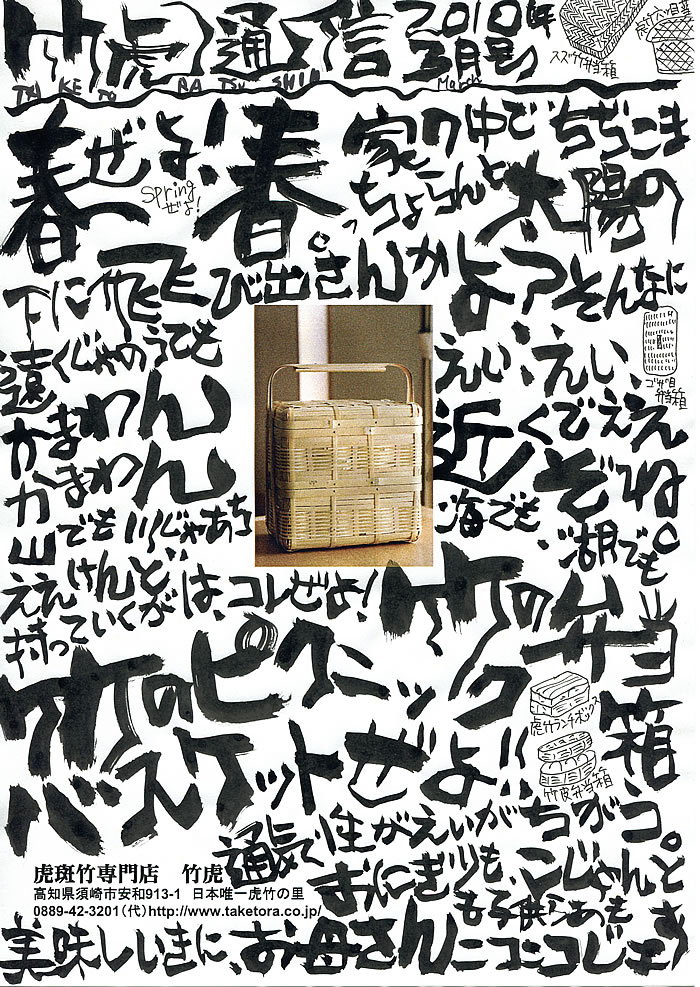 竹虎通信
2010年
3月号
TAKE TORA TSUSHIN
March
虎竹六ツ目巣
スズ竹弁当箱
春ぜよ！春。
Springぜよ！
家の中でちぢこま
っちょらんと太陽の
下に飛び出さんかよ？そんなに
遠くじゃのうても
えい、えい、
かまわん
近くでええ
かまわん
ぞね。
ゴザ目弁当箱
山でも川じゃあち
海でも、湖でも。
ええけんど
持っていくがは、コレぜよ！
竹の弁当箱
竹のピクニック
バスケットぜよ!!
虎竹ランチボックス
竹皮弁当箱
通気性がえいがで
ちがうコ。
おにぎりも、こじゃんと
美味しいきに、お母さんニコニコじゃき
虎斑竹専門店　竹虎
高知県須崎市安和913-1　日本唯一虎竹の里
0889-42-3201(代)http://www.taketora.co.jp/